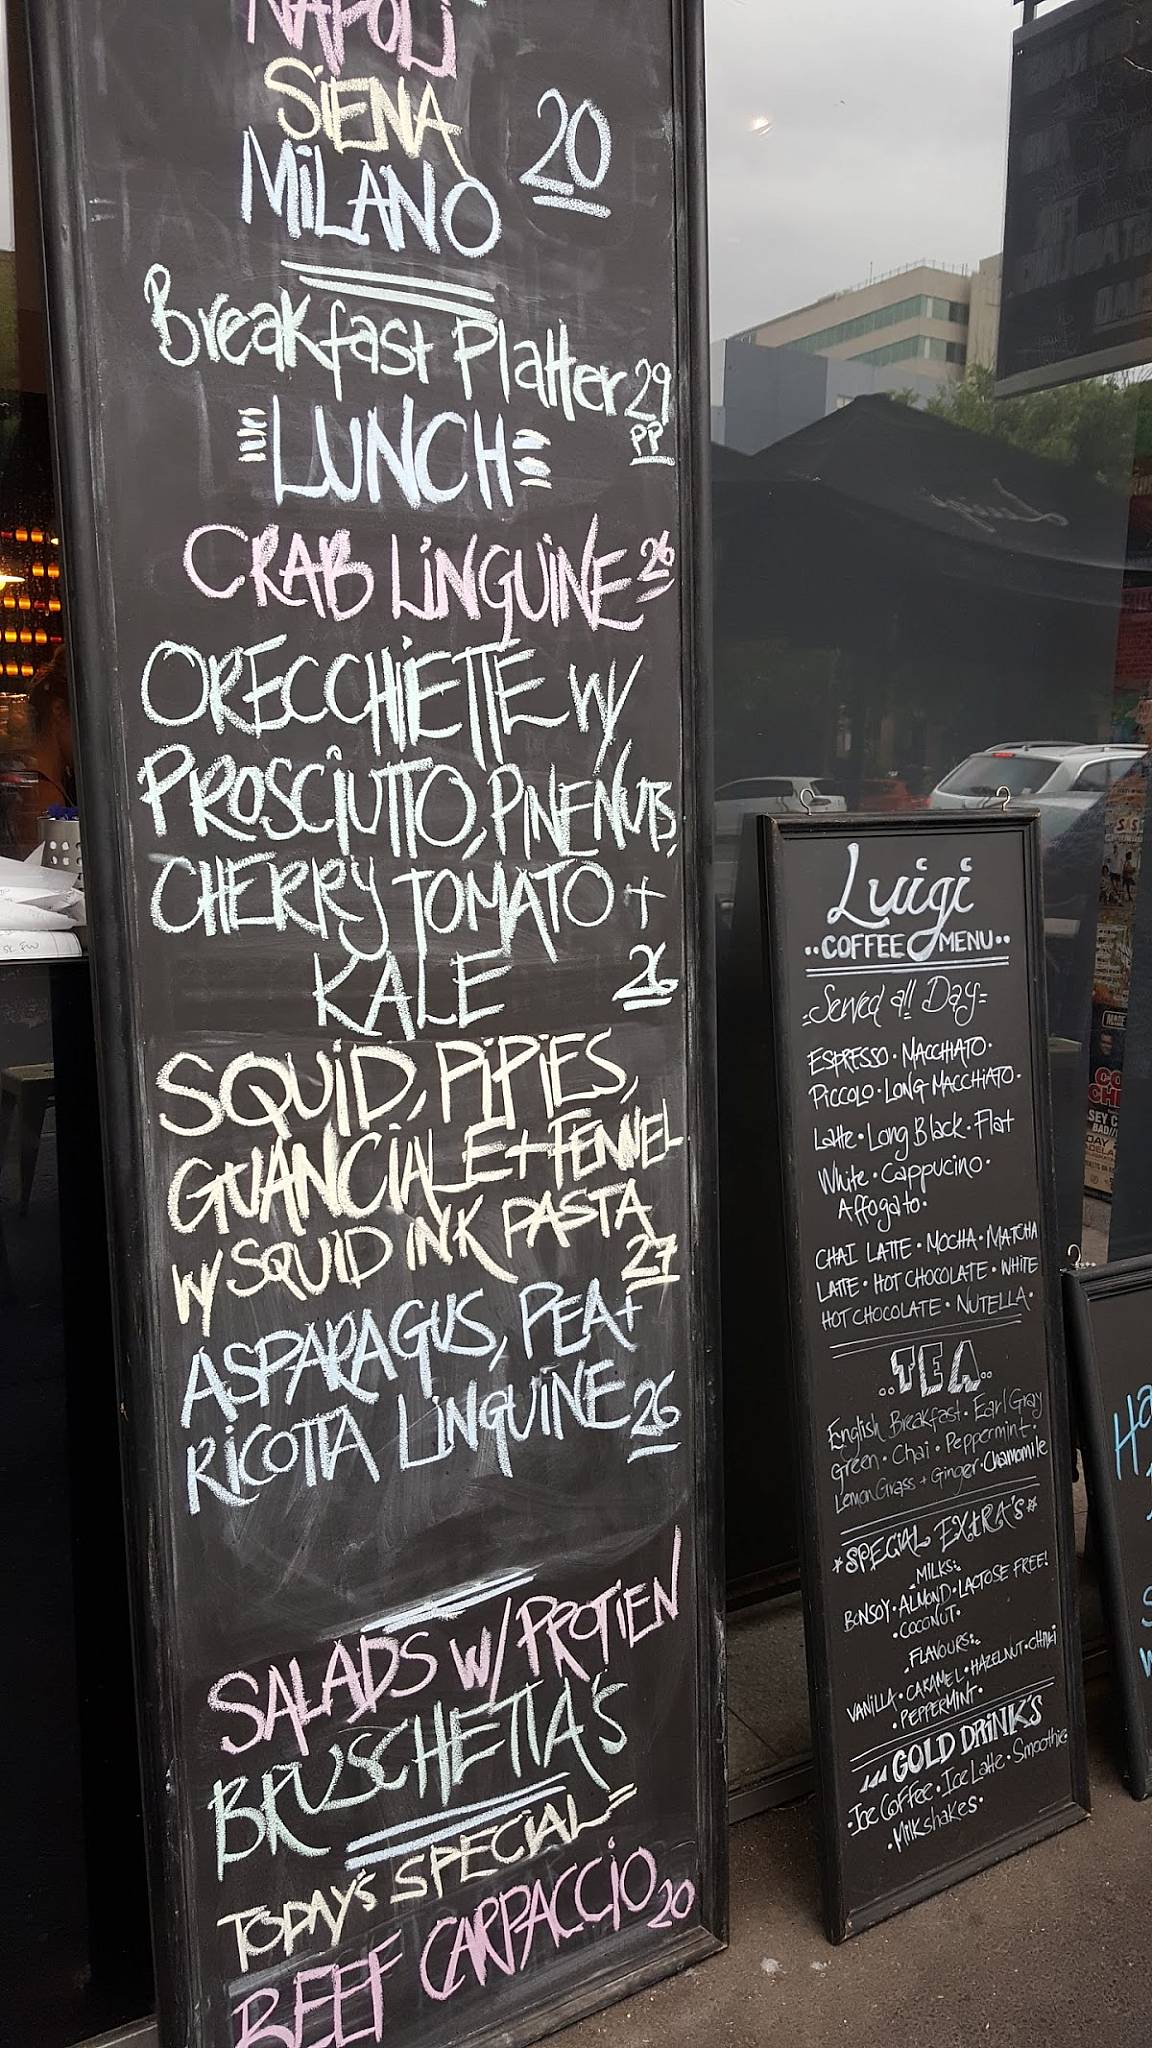 NAPOLI
SIENA
MILANO 20
Breakfast Platter 29
PP
LUNCH
CRAB LINGUINE 26
ORECCHIETTE W/
PROSCIUTTO, PINENUTS,
CHERRY TOMATO +
KALE 26
SQUID, PIPIES,
GUANCIALE + FENNEL
W/ SQUID INK PASTA
27
ASPARAGUS, PEA +
RICOTTA LINGUINE 26
SALADS W/ PROTIEN
BRUSCHETTA'S
TODAY'S SPECIAL
BEEF CARPACCIO 20
Luigi
..COFFEE MENU..
Served all Day
ESPRESSO · MACCHIATO ·
PICCOLO · LONG MACCHIATO ·
Latte · Long Black · Flat
White · Cappucino ·
Affogato ·
CHAI LATTE · MOCHA · MATCHA
LATTE · HOT CHOCOLATE · WHITE
HOT CHOCOLATE · NUTELLA ·
..TEA..
English Breakfast · Earl Gray
Green · Chai · Peppermint ·
LemonGrass + Ginger · Chamomile
*SPECIAL EXTRA'S*
MILKS:
BONSOY · ALMOND · LACTOSE FREE!
· COCONUT ·
FLAVOURS:
VANILLA · CARAMEL · HAZELNUT ·
· PEPPERMINT ·
GOLD DRINK'S
· Ice Coffee · Ice Latte · Smoothie
· Milkshakes ·